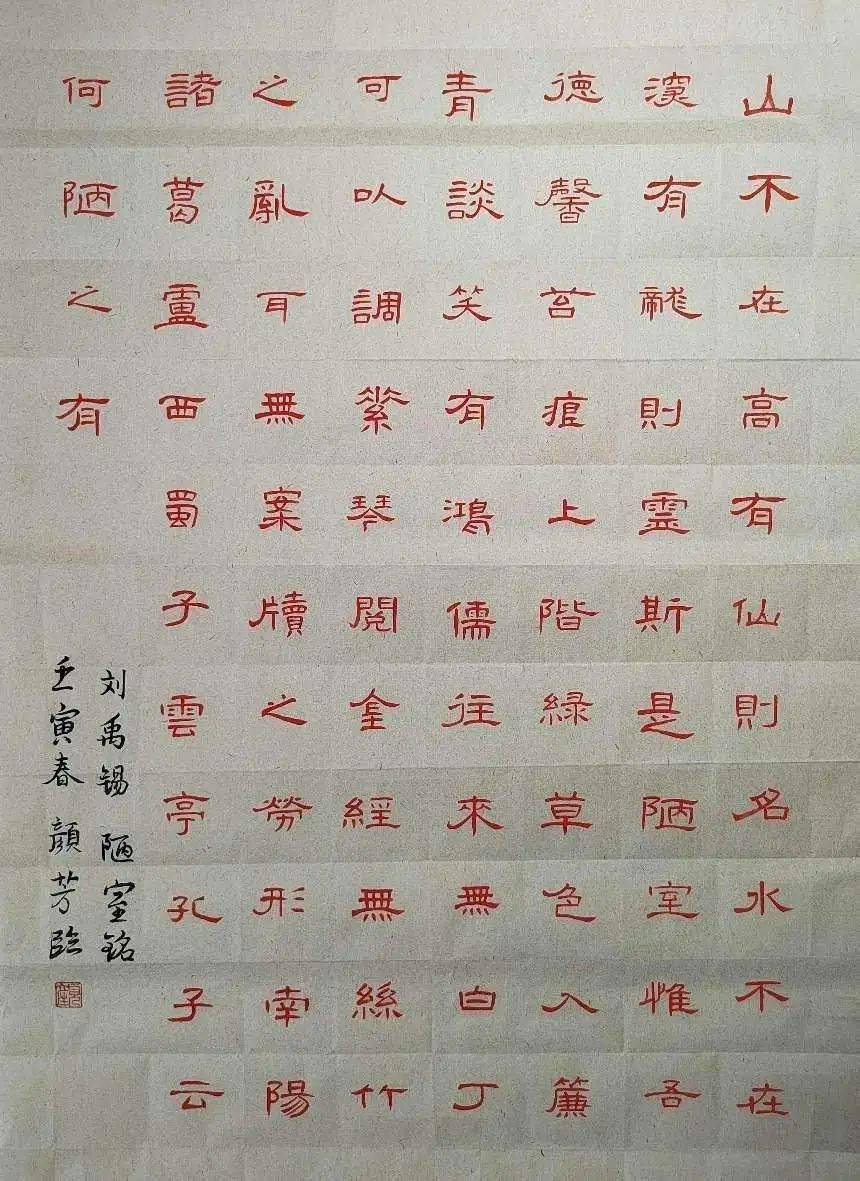 山不在高有仙則名水不在
深有龍則靈斯是陋室惟吾
德馨苔痕上階緑草色入簾
青談笑有鴻儒往來無白丁
可以調素琴閱金經無絲竹
之亂耳無案牘之勞形南陽
諸葛廬西蜀子雲亭孔子云
何陋之有
刘禹锡 陋室銘
壬寅春 顏芳臨